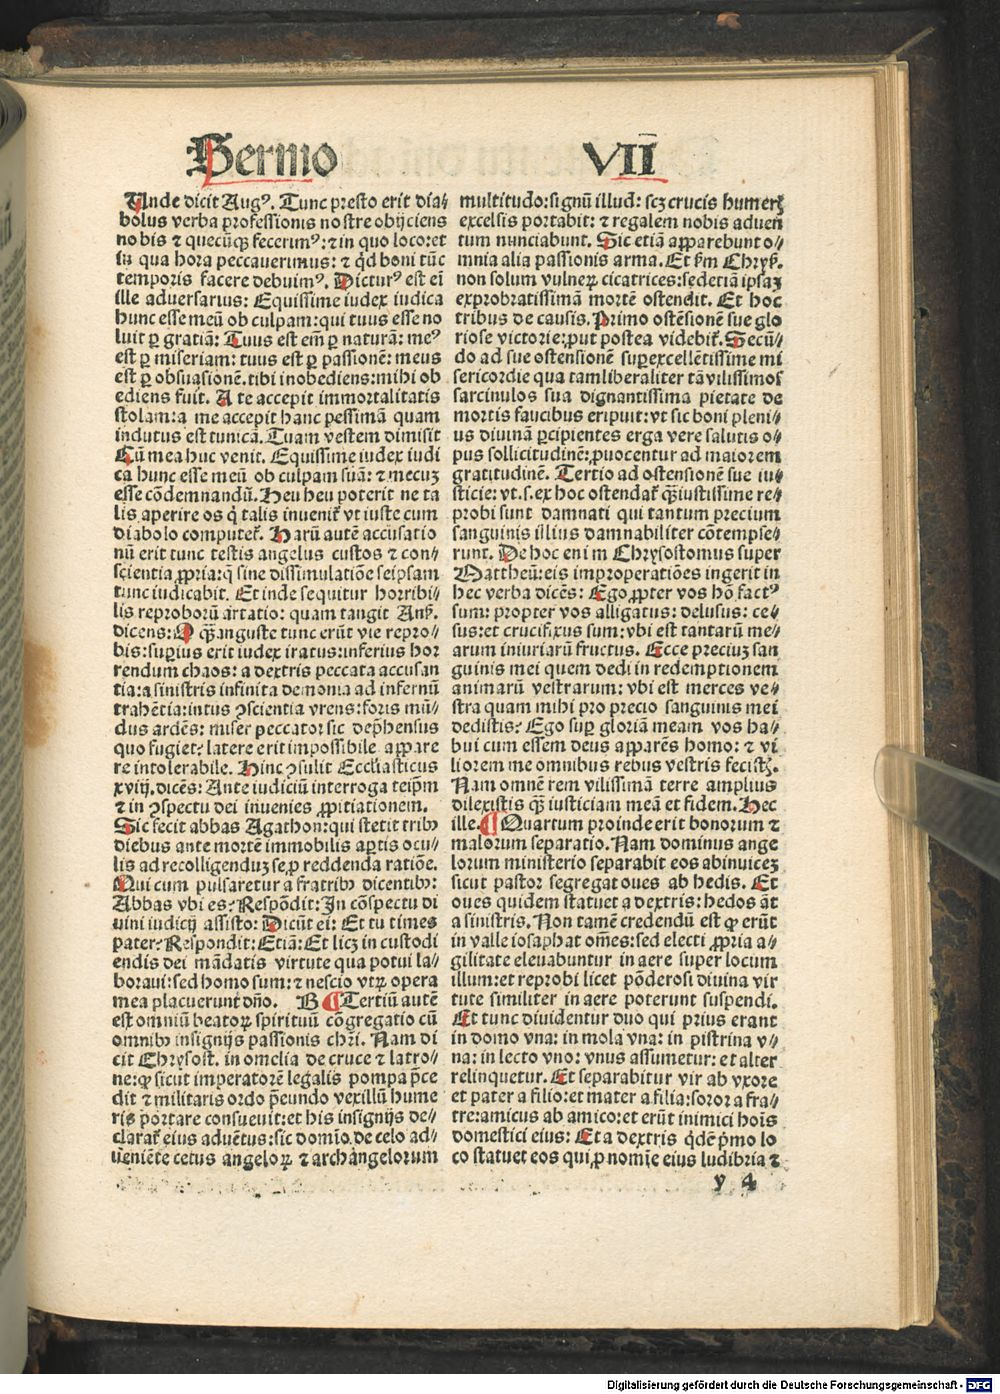 Sermo VII
Unde dicit Augꝰ. Tunc presto erit dia⸗
bolus verba professionis nostre obijciens
nobis ⁊ quecūqꝫ fecerimꝰ: ⁊ in quo loco: et
in qua hora peccauerimus: ⁊ qd̄ boni tūc
temporis facere debuimꝰ. Dicturꝰ est eī
ille aduersarius: Equissime iudex iudica
hunc esse meū ob culpam: qui tuus esse no
luit ꝑ gratiā: Tuus est em̄ ꝑ naturā: meꝰ
est ꝑ miseriam: tuus est ꝑ passionē: meus
est ꝑ obsuasionē. tibi inobediens: mihi ob
ediens fuit. A te accepit immortalitatis
stolam: a me accepit hanc pessimā quam
indutus est tunicā. Tuam vestem dimisit
Cū mea huc venit. Equissime iudex iudi
ca hunc esse meū ob culpam suā: ⁊ mecuꝫ
esse cōdemnandū. Heu heu poterit ne ta
lis aperire os q̇ talis inuenit̄ vt iuste cum
diabolo computet̄. Harū autē accusatio
nū erit tunc testis angelus custos ⁊ con⸗
scientia ꝓpria: q̄ sine dissimulatiōe seipsam
tunc iudicabit. Et inde sequitur horribi⸗
lis reproborū artatio: quam tangit Anß.
dicens: O qꝫ̄ anguste tunc erūt vie repro⸗
bis: suꝑius erit iudex iratus: inferius hor
rendum chaos: a dextris peccata accusan
tia: a sinistris infinita demonia ad infernū
trahētia: intus ꝯscientia vrens: foris mū⸗
dus ardēs: miser peccator sic dep̄hensus
quo fugiet? latere erit impossibile apparere
re intolerabile. Hinc ꝯsulit Eccliasticus
xviij. dicēs: Ante iudiciū interroga teip̄m
⁊ in ꝯspectu dei inuenies ꝓpitiationem.
Sic fecit abbas Agathon: qui stetit tribꝰ
diebus ante mortē immobilis aꝑtis ocu⸗
lis ad recolligenduꝫ se, ꝓ reddenda ratiōe.
Qui cum pulsaretur a fratribꝰ dicentibꝰ:
Abbas vbi es? Respōdit: In cōspectu di
uini iudicij assisto: Dicūt ei: Et tu times
pater? Respondit: Etiā: Et licꝫ in custodi
endis dei mādatis virtute qua potui la⸗
boraui: sed homo sum: ⁊ nescio vtꝝ opera
mea placuerunt dn̄o. B ¶Tertiū autē
est omniū beatoꝝ spirituū cōgregatio cū
omnibꝰ insignijs passionis chr̄i. Nam di
cit Chrysost. in omelia de cruce ⁊ latro⸗
ne: ꝙ sicut imperatorē legalis pompa p̄ce
dit ⁊ militaris ordo p̄eundo vexillū hume
ris portare consueuit: et his insignijs de⸗
clarat̄ eius aduētus: sic domīo de celo ad⸗
ueniēte cetus angeloꝝ ⁊ archangelorum
multitudo: signū illud: scꝫ crucis humeꝝ
excelsis portabit: ⁊ regalem nobis aduen
tum nunciabunt. Sic etiā apparebunt o⸗
mnia alia passionis arma. Et ßm Chryß.
non solum vulneꝝ cicatrices: sed etiā ipsaꝫ
exprobratissimā mortē ostendit. Et hoc
tribus de causis. Primo ostēsionē sue glo
riose victorie: put postea videbit̄. Secū⸗
do ad sue ostensionē suꝑexcellētissime mi
sericordie qua tam liberaliter tā vilissimos
sarcinulos sua dignantissima pietate de
mortis faucibus eripuit: vt sic boni pleni⸗
us diuinā ꝑcipientes erga vere salutis o⸗
pus sollicitudinē: ꝓuocentur ad maiorem
gratitudinē. Tertio ad ostensionē sue iu⸗
sticie: vt. s. ex hoc ostendat̄ qꝫ̄ iustissime re⸗
probi sunt damnati qui tantum precium
sanguinis illius damnabiliter cōtempse⸗
runt. De hoc enim Chrysostomus super
Mattheū: eis improperatiōes ingerit in
hec verba dicēs: Ego ꝓpter vos hō factꝰ
sum: propter vos alligatus: delusus: ce⸗
sus: et crucifixus sum: vbi est tantarū me⸗
arum iniuriarū fructus. Ecce preciuꝫ san
guinis mei quem dedi in redemptionem
animarū vestrarum: vbi est merces ve⸗
stra quam mihi pro precio sanguinis mei
dedistis? Ego suꝑ gloriā meam vos ha⸗
bui cum essem deus apparēs homo: ⁊ vi
liorem me omnibus rebus vestris fecistꝭ.
Nam omnē rem vilissimā terre amplius
dilexistis qꝫ̄ iusticiam meā et fidem. Hec
ille. ¶Quartum proinde erit bonorum ⁊
malorum separatio. Nam dominus ange
lorum ministerio separabit eos abinuiceꝫ
sicut pastor segregat oues ab hedis. Et
oues quidem statuet a dextris: hedos āt
a sinistris. Non tamē credendū est ꝙ erūt
in valle iosaphat om̄es: sed electi ꝓpria a⸗
gilitate eleuabuntur in aere super locum
illum: et reprobi licet pōderosi diuina vir
tute similiter in aere poterunt suspendi.
Et tunc diuidentur duo qui prius erant
in domo vna: in mola vna: in pistrina v⸗
na: in lecto vno: vnus assumetur: et alter
relinquetur. Et separabitur vir ab vxore
et pater a filio: et mater a filia: soror a fra⸗
tre: amicus ab amico: et erūt inimici hoīs
domestici eius: Et a dextris qdē p̄mo lo
co statuet eos qui ꝓ nomīe eius ludibria ⁊
y 4
Digitalisierung gefördert durch die Deutsche Forschungsgemeinschaft - DFG